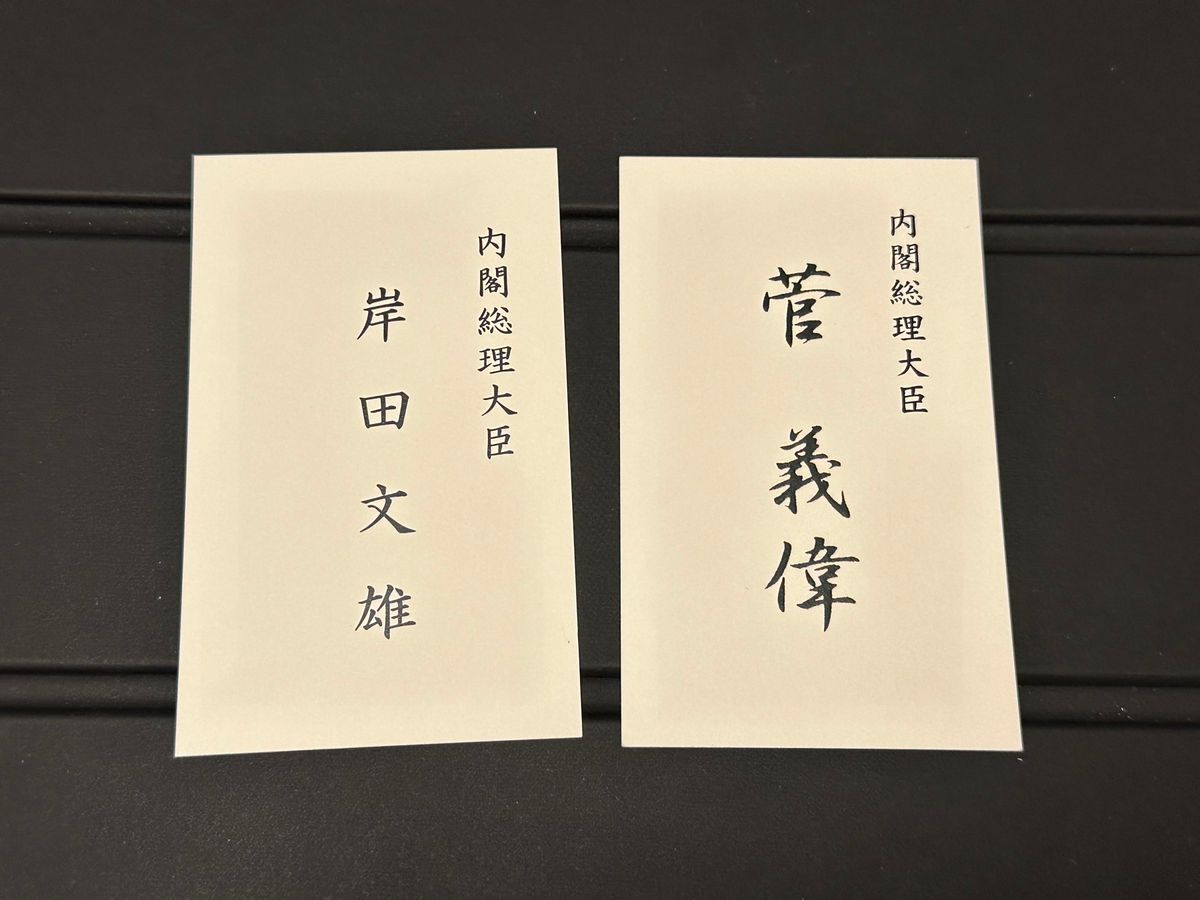 内閣総理大臣
岸田文雄
内閣総理大臣
菅義偉